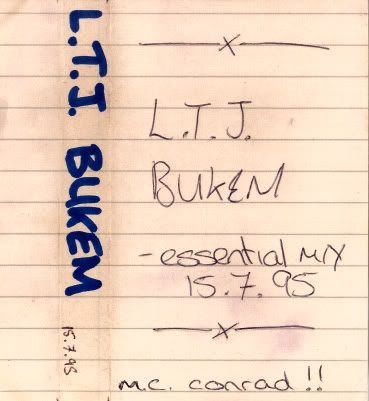 L.T.J. BUKEM
15.7.95
x
L.T.J.
BUKEM
-essential mix
15.7.95
x
m.c. conrad!!